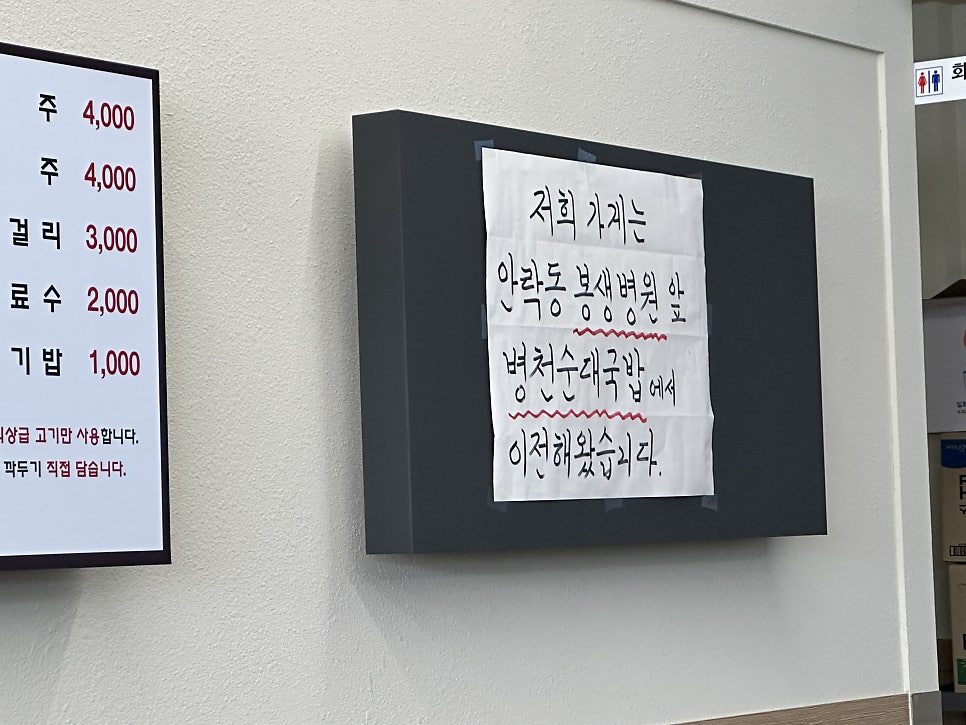 주 4,000
주 4,000
걸리 3,000
료수 2,000
기밥 1,000
상급 고기만 사용합니다.
깍두기 직접 담습니다.
저희 가게는
안락동 봉생병원 앞
병천순대국밥에서
이전해왔습니다.
화